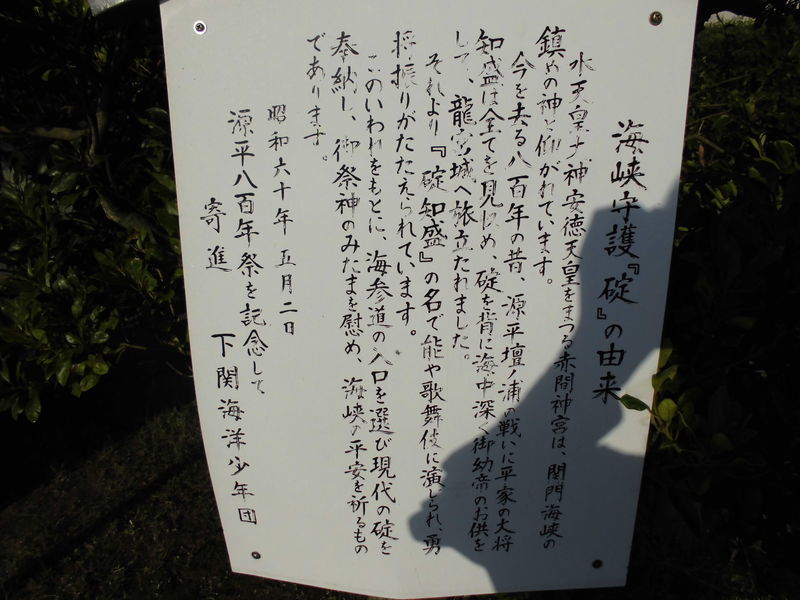 海峡守護『碇』の由来
水天皇大神安徳天皇をまつる赤間神宮は、関門海峡の
鎮めの神と仰がれています。
今を去る八百年の昔、源平壇ノ浦の戦いに平家の大将
知盛は全てを見収め、碇を背に海中深く御幼帝のお供を
して、龍宮城へ旅立たれました。
それより『碇知盛』の名で能や歌舞伎に演じられ、勇
将振りがたたえられています。
このいわれをもとに、海参道の入口を選び現代の碇を
奉納し、御祭神のみたまを慰め、海峡の平安を祈るもの
であります。
昭和六十年 五月二日
源平八百年祭を記念して
寄進 下関海洋少年団